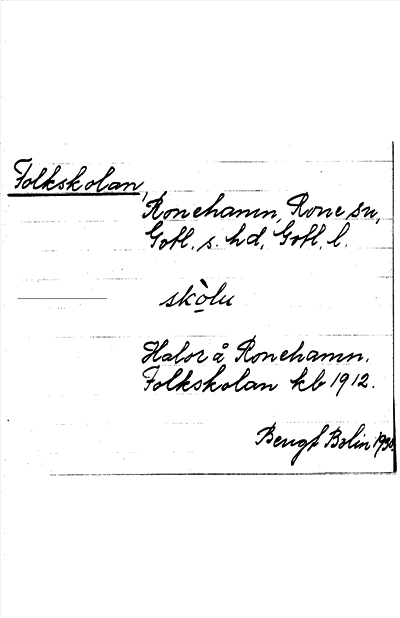 Folkskolan,
Ronehamn, Rone sn,
Gotl. s. hd, Gotl. l.
skòlu
å Ronehamn.
Folkskolan kb 1912.
Bengt Bolin 1930